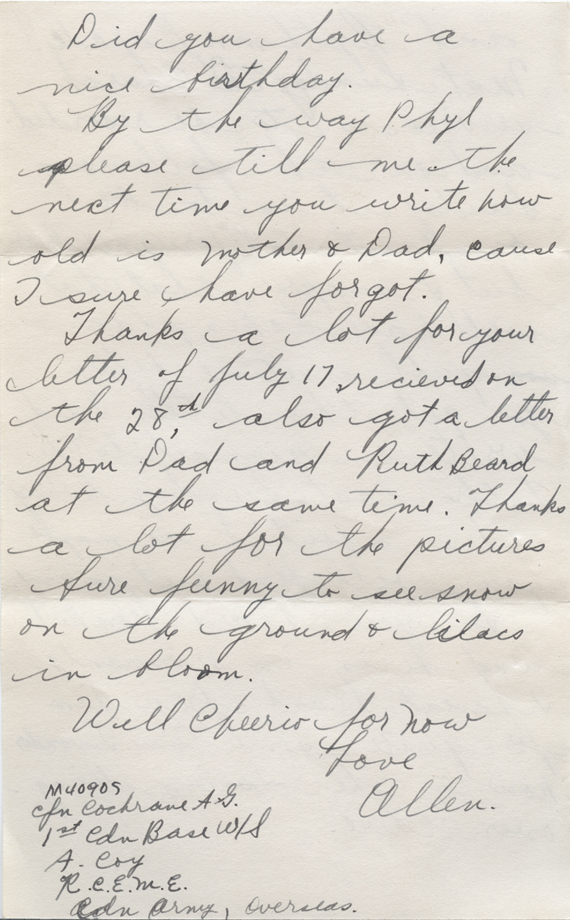 Did you have a
nice birthday.
By the way Phyl
please till me the
next time you write how
old is Mother & Dad, cause
I sure have forgot.
Thanks a lot for your
letter of July 17, recieved on
the 28,th also got a letter
from Dad and Ruth Beard
at the same time. Thanks
a lot for the pictures
sure funny to see snow
on the ground & lilacs
in bloom.
Well Cheerio for now
Love
Allen.
M40905
Cfn Cochrane A.G.
1st Cdn Base W/S
A. Coy
R.C.E.M.E.
Cdn Army, Overseas.